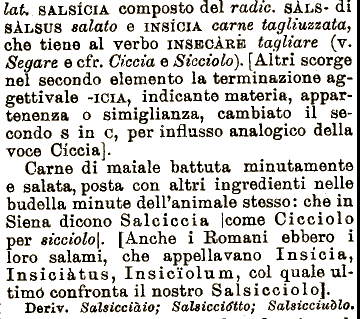 lat. SALSÍCIA composto del radic. SÀLS- di
SÀLSUS salato e INSÍCIA carne tagliuzzata,
che tiene al verbo INSECÀRE tagliare (v.
Segare e cfr. Ciccia e Sicciolo). [Altri scorge
nel secondo elemento la terminazione ag-
gettivale -ICIA, indicante materia, appar-
tenenza o simiglianza, cambiato il se-
condo S in C, per influsso analogico della
voce Cíccia].
Carne di maiale battuta minutamente
e salata, posta con altri ingredienti nelle
budella minute dell'animale stesso: che in
Siena dicono Salciccia |come Cicciolo
per sicciolo|. [Anche i Romani ebbero i
loro salami, che appellavano Insícia,
Insiciàtus, Insicïolum, col quale ul-
timo confronta il nostro Salsicciolo].
Deriv. Salsicciàio; Salsicciòtto; Salsicciuòlo.